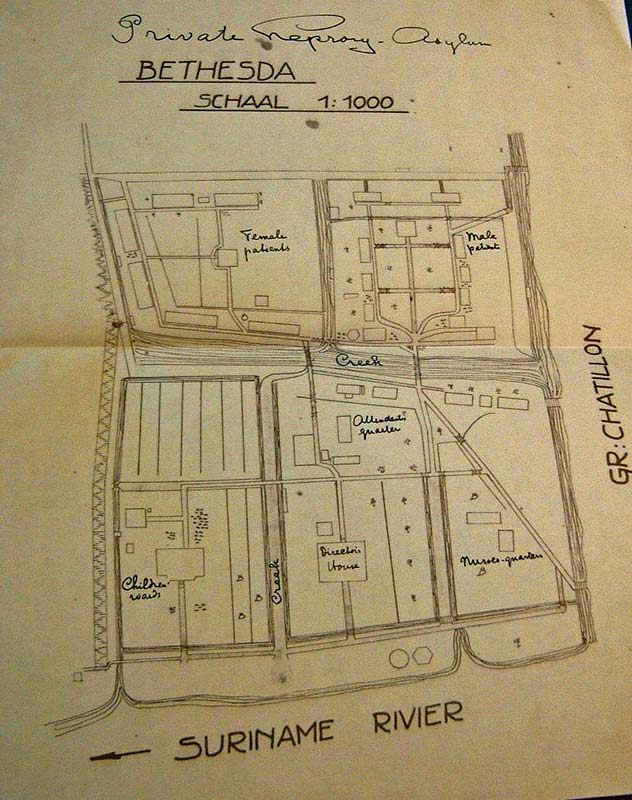 Private Leprosy-Asylum
BETHESDA
SCHAAL 1:1000
Female
patients
Male
patients
Creek
GR: CHATILLON
Attendants
quarter
Children
wards
Creek
Director's
House
Nurses-quarters
SURINAME RIVIER